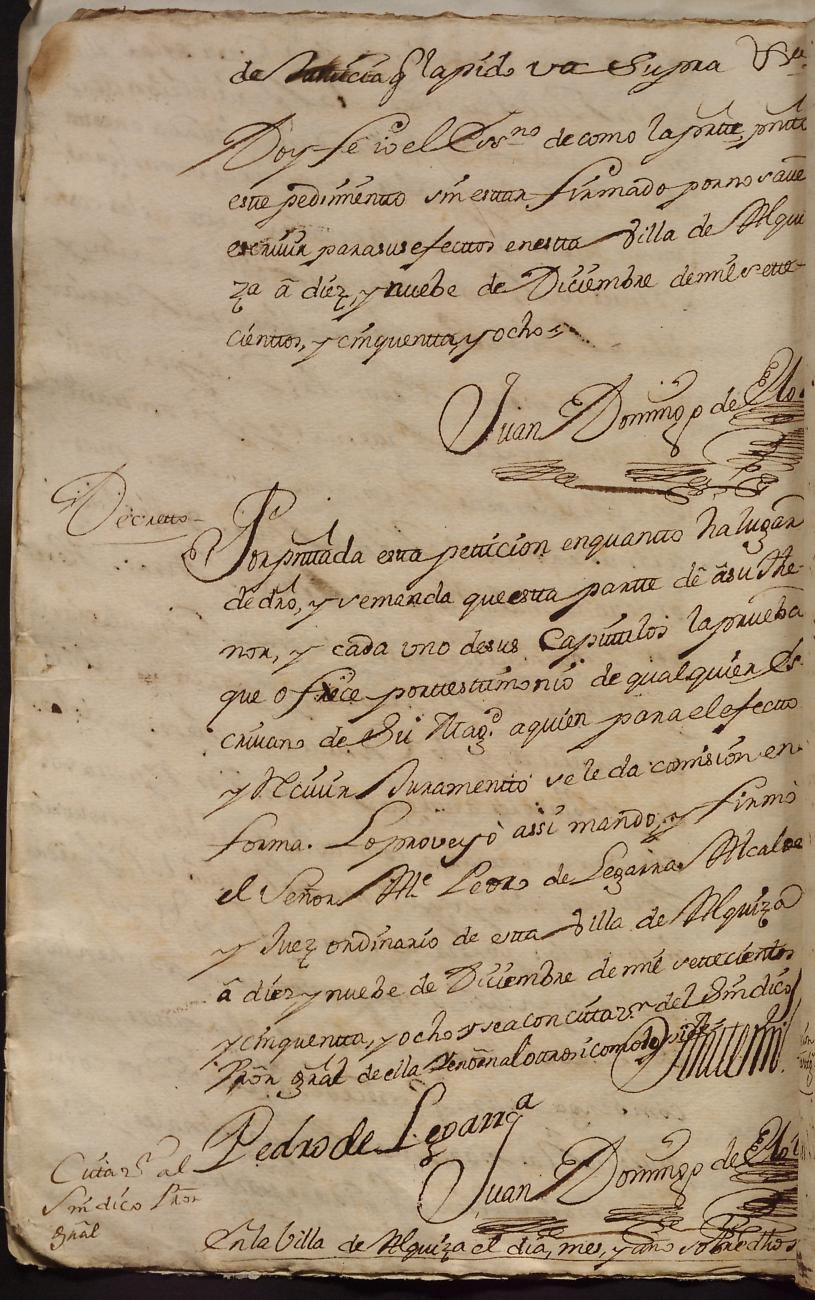 de Justicia q̃ la pido vt Supra
Doy fe io el Essno de como la partte, pntto
este pedimentto sin esttar firmado por no saue
escriuir para sus efecttos en estta Villa de Alqui
za â diez, y nuebe de Diziembre de mil sette-
cienttos, y cinquentta, y ocho =
Juan Domingo de
Decretto
Por pnttada esta petticion en quantto ha lugar
de dro, y se manda que estta partte dê â su the-
nor, y cada uno de sus Capittulos la prueba
que ofrece por testimonio de qualquier Es-
criuano de Su Magd. a quien para el efectto
y Reciuir Juramentto se le da comision en
forma. Lo proveyô assi mandô, y firmô
el Señor Pedro de Legarra Alcalde
y Juez ordinario de estta Villa de Alquiza
â diez y nuebe de Diziembre de mil settecienttos
y cinquentta, y ocho y sea con cittazn. del Sindico
Prõr grâl de ella
Pedro de Legarra
Juan Domingo de
Cittazn. al
Sindico Prõr
grâl
En la Villa de Alquiza el dia, mes, y año sobredhos